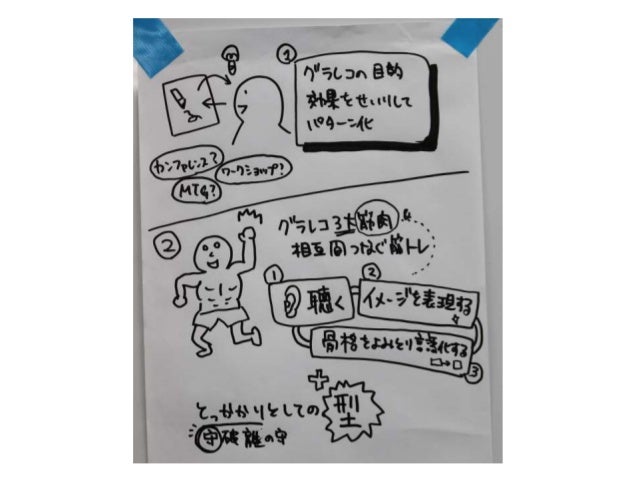 ①
グラレコの目的
効果をせいりして
パターン化
カンファレンス?
ワークショップ?
MTG?
②
グラレコ3大筋肉
相互間つなぐ筋トレ
①
聴く
②
イメージを表現する
骨格をよみとり言語化する
③
+
とっかかりとしての
型
守破離の守